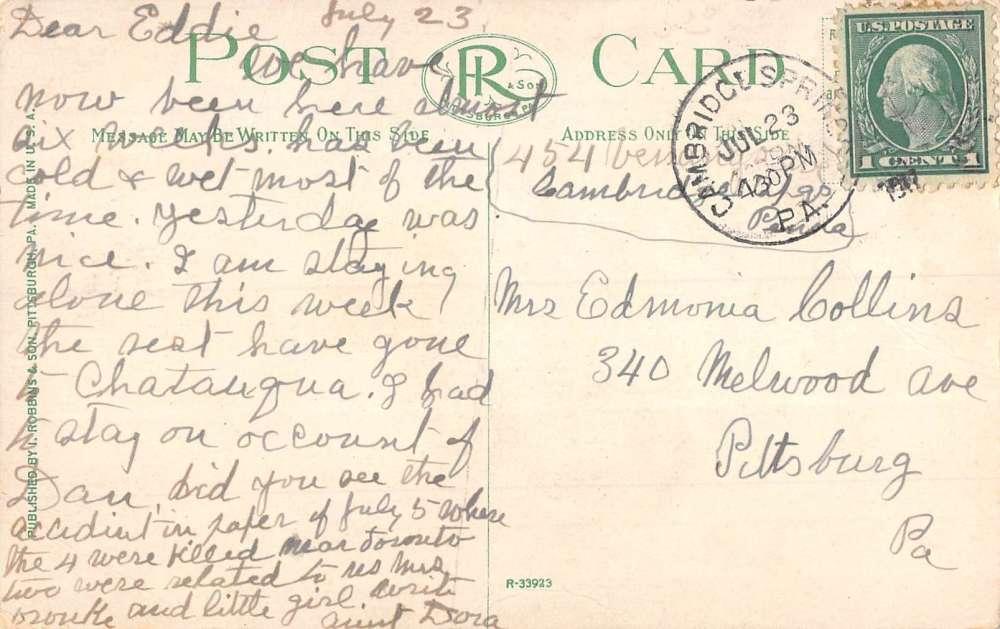 Dear Eddie July 23
POST CARD
we have
now been here almost
six weeks. has been
cold & wet most of the
time. yesterday was
nice. I am staying
alone this week
the rest have gone
to Chatauqua. I had
to stay on occount of
Dan, did you see the
accident in paper of July 5 where
the 4 were killed near toronto
two were related to us Mrs
and little girl. write
aunt Dora
R
& SON
PITTSBURGH, PA.
MESSAGE MAY BE WRITTEN ON THIS SIDE
ADDRESS ONLY ON THIS SIDE
PUBLISHED BY I. ROBBINS & SON, PITTSBURGH, PA. MADE IN U.S.A.
U.S. POSTAGE
1 CENT 1
CAMBRIDGE SPRINGS
JUL 23
430PM
PA.
454
Penna
Mrs Edmonia Collins
340 Melwood ave
Pittsburg
Pa
R-33923